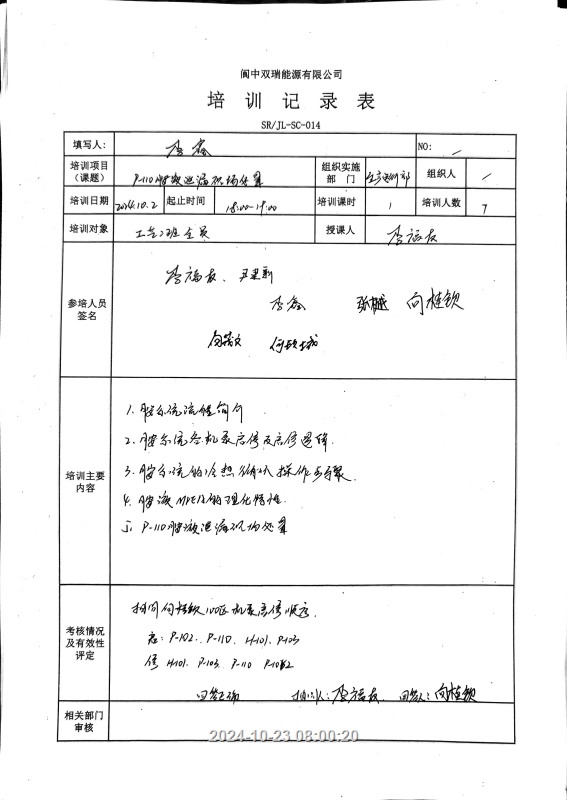 阆中双瑞能源有限公司
培训记录表
SR/JL-SC-014
填写人： 李鑫 NO: /
培训项目（课题） P-110胺液泄漏现场处置 组织实施部门 生产班部 组织人 /
培训日期 2024.10.2 起止时间 18:00-19:00 培训课时 1 培训人数 7
培训对象 工艺二班全员 授课人 李福友
参培人员签名
李福友、
李鑫 张樾 向桂钦
培训主要内容
1. 胺系统流程简介
2. 胺系统各机泵启停及启停逻辑
3. 胺系统的冷热循环操作步骤
4. 胺液MDEA的理化特性
5. P-110胺液泄漏现场处置
考核情况及有效性评定
提问向桂钦100区机泵启停顺序
启: P-102. P-110 H-101. P-103
停 H101. P-103 P-110 P-102
回答正确 提问人: 李福友 回答人: 向桂钦
相关部门审核
2024-10-23 08:00:20